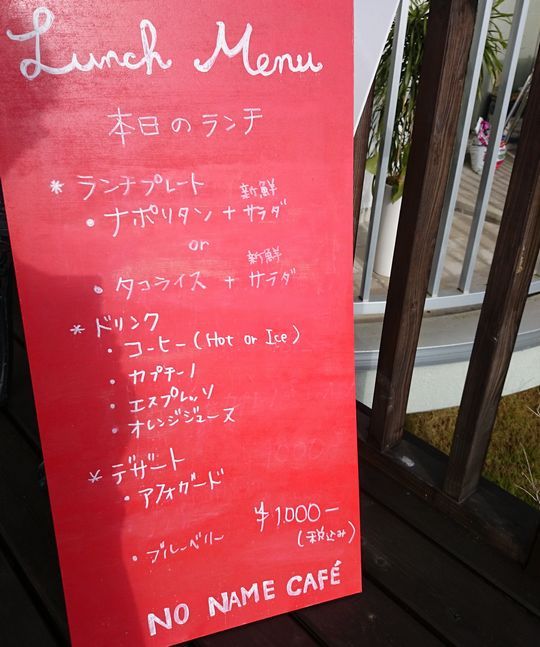 Lunch Menu
本日のランチ
* ランチプレート
・ナポリタン + 新鮮サラダ
or
・タコライス + 新鮮サラダ
* ドリンク
・コーヒー (Hot or Ice)
・カプチーノ
・エスプレッソ
・オレンジジュース
* デザート
・アフォガード
・ブルーベリー
¥1.000-
(税込み)
NO NAME CAFÉ